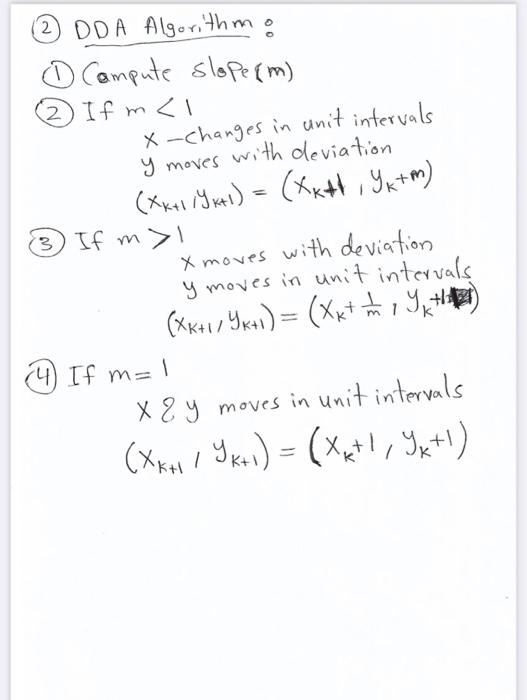 ② DDA Algorithm :
① Compute slope(m)
② If m < 1
x - changes in unit intervals
y moves with deviation
(xₖ₊₁, yₖ₊₁) = (xₖ+1, yₖ+m)
③ If m > 1
x moves with deviation
y moves in unit intervals
(xₖ₊₁, yₖ₊₁) = (xₖ + 1/m, yₖ+1)
④ If m = 1
x & y moves in unit intervals
(xₖ₊₁, yₖ₊₁) = (xₖ+1, yₖ+1)